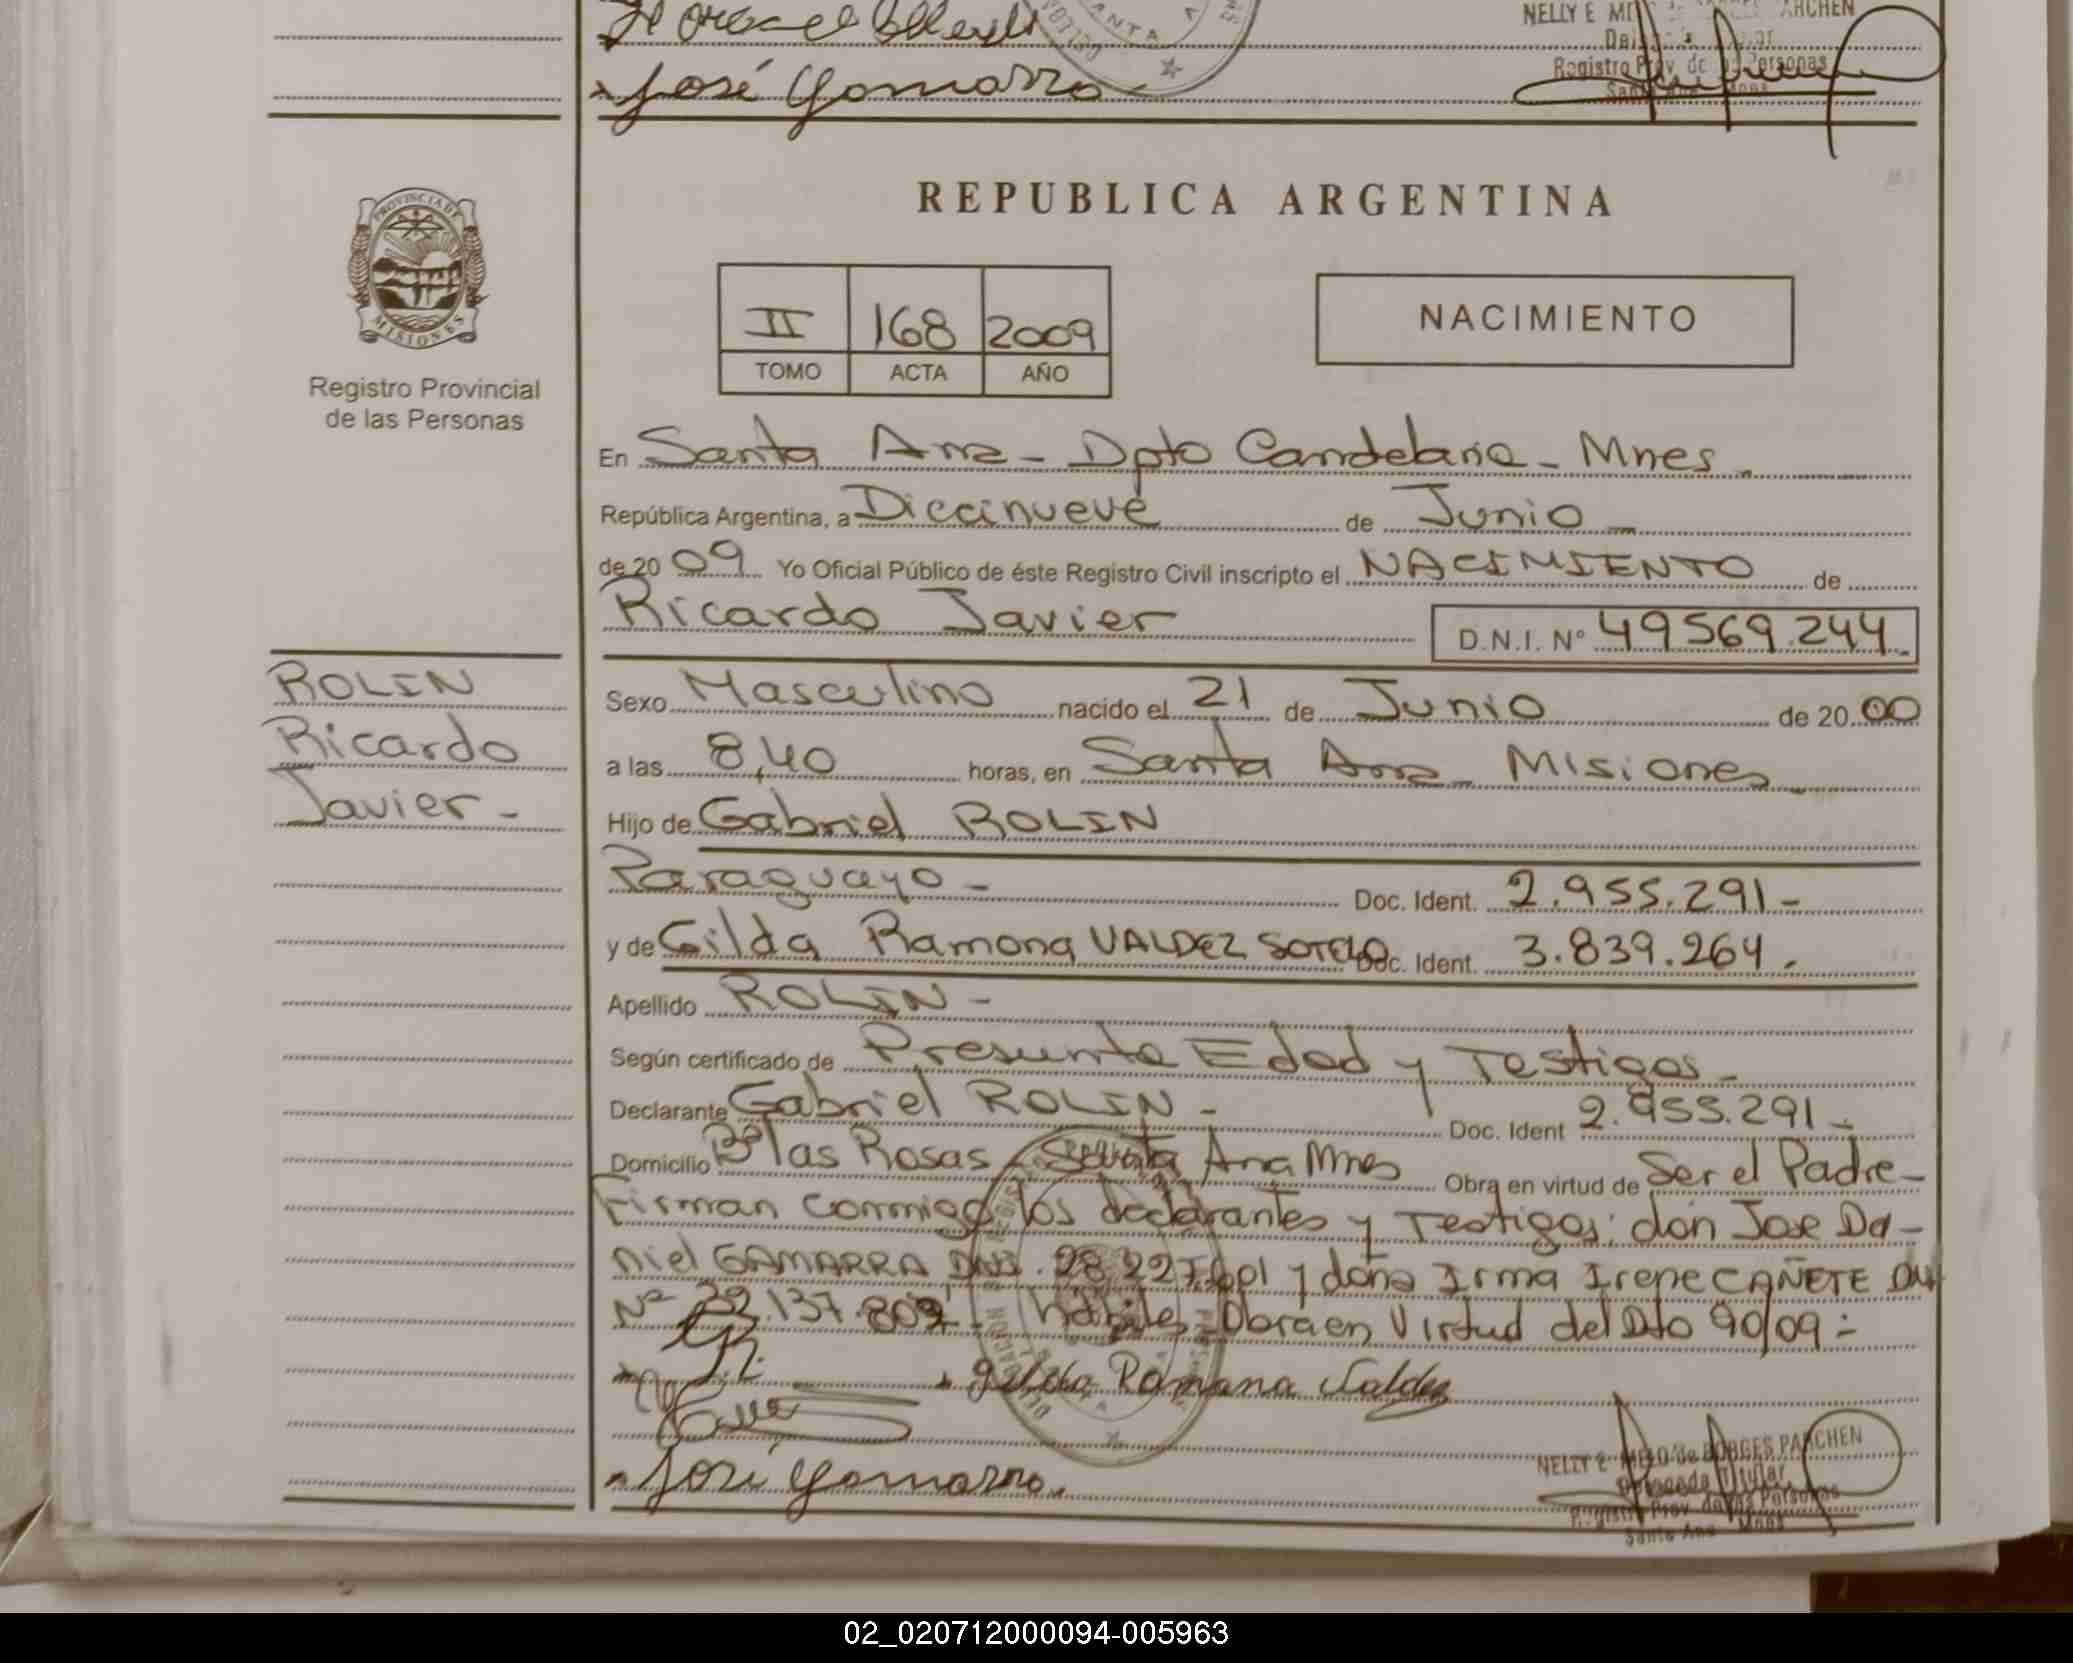 José Gamarra
NELLY E
Registro Prov. de las Personas
REPUBLICA ARGENTINA
PROVINCIA DE
MISIONES
Registro Provincial
de las Personas
II 168 2009
TOMO ACTA AÑO
NACIMIENTO
En Santa Ana - Dpto Candelaria - Mnes.
República Argentina, a Diecinueve de Junio
de 20 09 Yo Oficial Público de éste Registro Civil inscripto el NACIMIENTO de
Ricardo Javier D.N.I. Nº 49569.244
ROLIN
Ricardo
Javier -
Sexo Masculino nacido el 21 de Junio de 20 00
a las 8,40 horas, en Santa Ana - Misiones
Hijo de Gabriel ROLIN
Paraguayo - Doc. Ident. 2.955.291 -
y de Gilda Ramona VALDEZ SOTELO Doc. Ident. 3.839.264 .
Apellido ROLIN -
Según certificado de Presunta Edad y Testigos -
Declarante Gabriel ROLIN - Doc. Ident 2.955.291 -
Domicilio Bº las Rosas - Santa Ana Mnes Obra en virtud de Ser el Padre -
Firman conmigo los declarantes y Testigos: don Jose Da-
niel GAMARRA DNI. y doña Irma Irene CAÑETE DNI
Nº 39.137.809 - habiles - Obra en Virtud del Dto 90/09 :-
Gilda Ramona Valdez
José Gamarra.
NELLY E. MELO de BORGES PARCHEN
Delegada Titular
Registro Prov. de las Personas
Santa Ana - Mnes
02_020712000094-005963